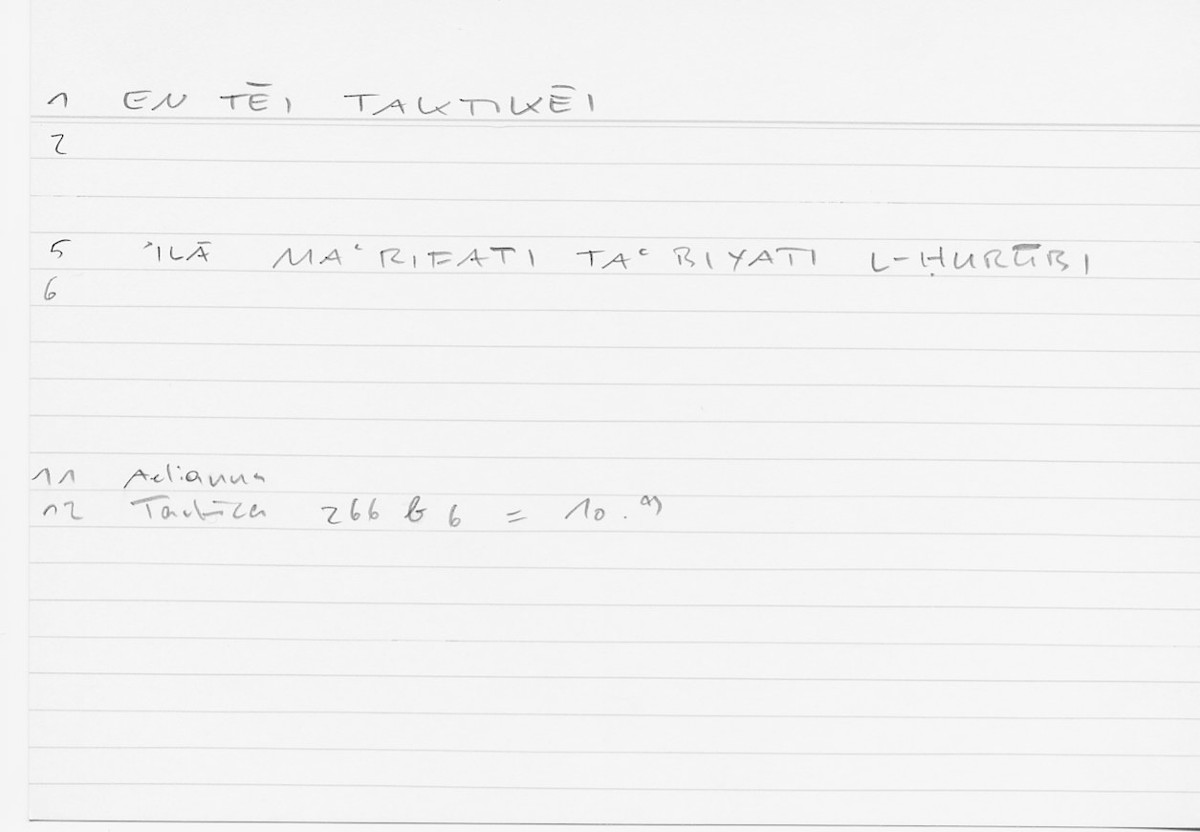 1 EN TĒI TAKTIKĒI
2
5 ʾILĀ MAʿRIFATI TAʿBIYATI L-ḤURŪBI
6
11 Aelianus
12 Tactica 266 b 6 = 10.